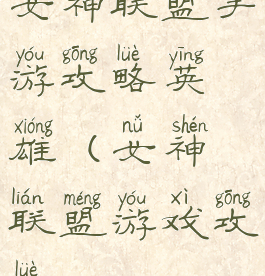 女神联盟手
yóu gōng lüè yīng
游攻略英
xióng nǚ shén
雄（女神
lián méng yóu xì gōng
联盟游戏攻
lüè